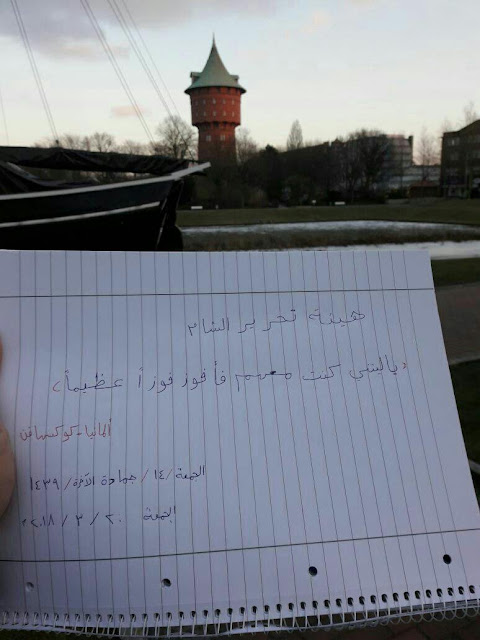 هيئة تحرير الشام
(ياليتني كنت معهم فأفوز فوزاً عظيماً)
ألمانيا-كوكسهافن
الجمعة/١٤/جمادة الآخرة/١٤٣٩
الجمعة ٢٠/٣/٢٠١٨